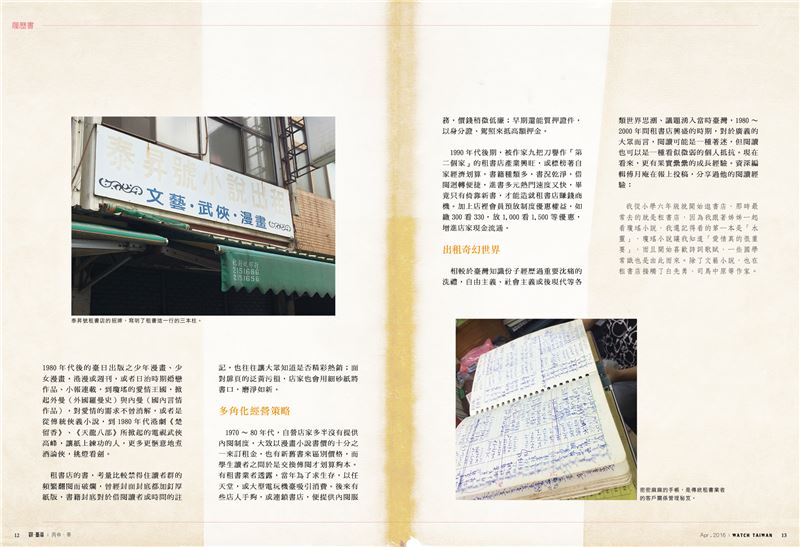 履歷書
泰昇號小說出租
文藝・武俠・漫畫
2151686
2151656
泰昇號租書店的招牌，寫明了租書這一行的三本柱。
1980 年代後的臺日出版之少年漫畫、少
女漫畫，港漫或週刊，或者日治時期婚戀
作品、小報連載，到瓊瑤的愛情王國，掀
起外曼（外國羅曼史）與內曼（國內言情
作品），對愛情的需求不曾消解，或者是
從傳統俠義小說，到 1980 年代港劇《楚
留香》、《天龍八部》所掀起的電視武俠
高峰，讓紙上練功的人，更多更愜意地煮
酒論俠，挑燈看劍。
租書店的書，考量比較禁得住讀者群的
頻繁翻閱而破爛，曾經封面封底都加釘厚
紙版，書籍封底對於借閱讀者或時間的註
記，也往往讓大眾知道是否精彩熱銷；面
對扉頁的泛黃污損，店家也會用細砂紙將
書口，磨淨如新。
多角化經營策略
1970 ～ 80 年代，自營店家多半沒有提供
內閱制度，大致以漫畫小說書價的十分之
一來訂租金，也有新舊書來區別價格，而
學生讀者之間於是交換傳閱才划算夠本。
有租書業者透露，當年為了求生存，以任
天堂，或大型電玩機臺吸引消費，後來有
些店人手夠，或連鎖書店，便提供內閱服
務，價錢稍微低廉；早期還能質押證件，
以身分證，駕照來抵高額押金。
1990 年代後期，被作家九把刀譽作「第
二個家」的租書店產業興旺，或標榜著自
家經濟划算、書籍種類多、書況乾淨、借
閱迴轉便捷，進書多元熱門速度又快，畢
竟只有倚靠新書，才能造就租書店賺錢商
機。加上店裡會員預放制度優惠權益，如
繳 300 看 330，放 1,000 看 1,500 等優惠，
增進店家現金流通。
出租奇幻世界
相較於臺灣知識份子經歷過重要沈痛的
洗禮，自由主義、社會主義或後現代等各
類世界思潮、議題湧入當時臺灣，1980 ～
2000 年間租書店興盛的時期，對於廣義的
大眾而言，閱讀可能是一種著迷，但閱讀
也可以是一種看似微弱的個人抵抗。現在
看來，更有果實纍纍的成長經驗。資深編
輯傅月庵在報上投稿，分享過他的閱讀經
驗：
我從小學六年級就開始逛書店，那時最
常去的就是租書店，因為我跟著姊姊一起
看瓊瑤小說，我還記得看的第一本是「水
靈」，瓊瑤小說讓我知道「愛情真的很重
要」，而且開始喜歡詩詞歌賦，一些國學
常識也是由此而來。除了文藝小說，也在
租書店接觸了白先勇、司馬中原等作家。
密密麻麻的手帳，是傳統租書業者
的客戶關係管理秘笈。
12 觀・臺灣
Apr , 2016 | WATCH TAIWAN 13